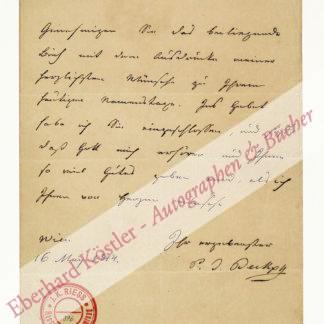 Genehmigen Sie das beiliegende
Buch mit dem Ausdrucke meiner
herzlichsten Wünsche zu Ihrem
heutigen Namenstage. Ins Gebet
habe ich Sie eingeschlossen, und
daß Gott mich erhören und Ihnen
so viel Gutes geben als ich
Ihnen von Herzen
Wien
16 1874.
Ihr ergebenster
P. J.
I. K. RIEGS
Eberhard Köstler - Autographen & Bücher